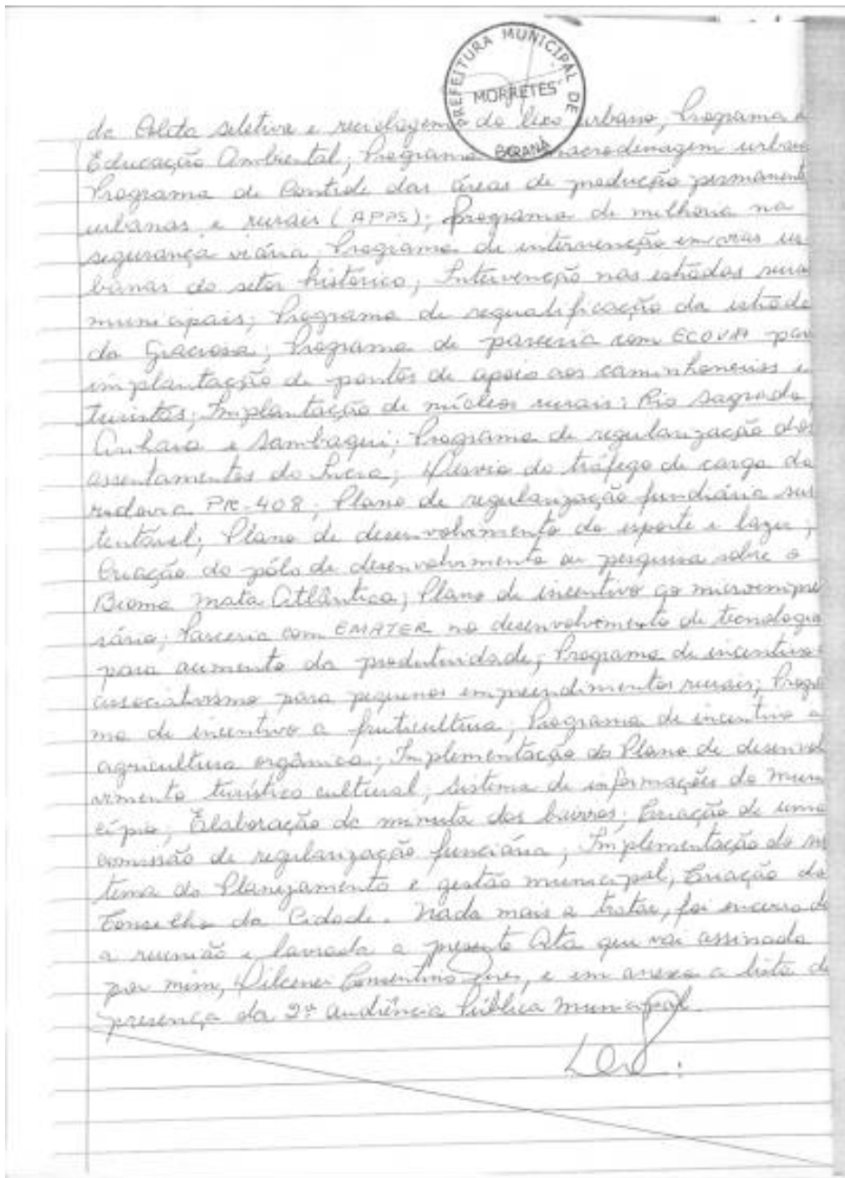 PREFEITURA MUNICIPAL DE
MORRETES
PARANÁ
de Coleta seletiva e reciclagem do lixo urbano; Programa de
Educação Ambiental; Programa macrodrenagem urbana
Programa de Controle das áreas de produção permanente
urbanas e rurais (APPS); programa de melhoria na
segurança viária Programa de intervenção em vias ur
banas do setor histórico; Intervenção nas estradas rurais
municipais; Programa de requalificação da estrada
da Graciosa; Programa de parceria com ECOVIA para
implantação de pontos de apoio aos caminhoneiros e
turistas; Implantação de núcleos rurais: Rio Sagrado,
Anhaia e Sambaqui; Programa de regularização dos
assentamentos do Incra; Desvio do tráfego de carga da
rodovia PR-408; Plano de regularização fundiária sus
tentável; Plano de desenvolvimento do esporte e lazer;
Criação do pólo de desenvolvimento ou pesquisa sobre o
Bioma Mata Atlântica; Plano de incentivo ao microempre
sário; Parceria com EMATER no desenvolvimento de tecnologia
para aumento da produtividade; Programa de incentivo
associativismo para pequenos empreendimentos rurais; Progra
ma de incentivo a fruticultura; Programa de incentivo a
agricultura orgânica; Implementação do Plano de desenvol
vimento turístico cultural; Sistema de informações do muni
cípio; Elaboração da minuta dos bairros; Criação de uma
comissão de regularização funciária; Implementação do sis
tema do Planejamento e gestão municipal, Criação do
Conselho da Cidade. Nada mais a tratar, foi encerrada
a reunião e lavrada a presente Ata que vai assinada
por mim, e em anexo a lista de
presença da 2ª audiência Pública Municipal.